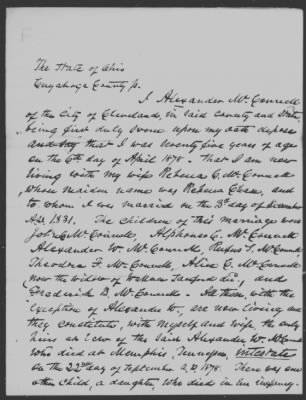 The State of Ohio
Cuyahoga County ss.
I Alexander McConnell
of the City of Cleveland, in said County and State,
being first duly sworn upon my oath depose
and say that I was seventy five years of age
on the 6th day of April 1878. That I am now
living with my wife Rebecca C. McConnell
whose maiden name was Rebecca Chase, and
to whom I was married on the 13th day of December
A.D. 1831. The children of this marriage were
John McConnell, Alphonso C. McConnell
Alexander W. McConnell, Rufus S. McConnell
Theodora F. McConnell, Alice C. McConnell
now the widow of Wallace, and
Frederick B. McConnell. All these, with the
exception of Alexander W., are now living and
they constitute, with myself and wife the only
heirs at law of the said Alexander W. McConnell
who died at Memphis, Tennessee, intestate
on the 22nd day of September A.D. 1878. There was one
other child, a daughter, who died in her infancy.